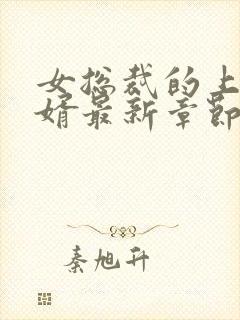 女总裁的上
婿最新章节
秦旭升